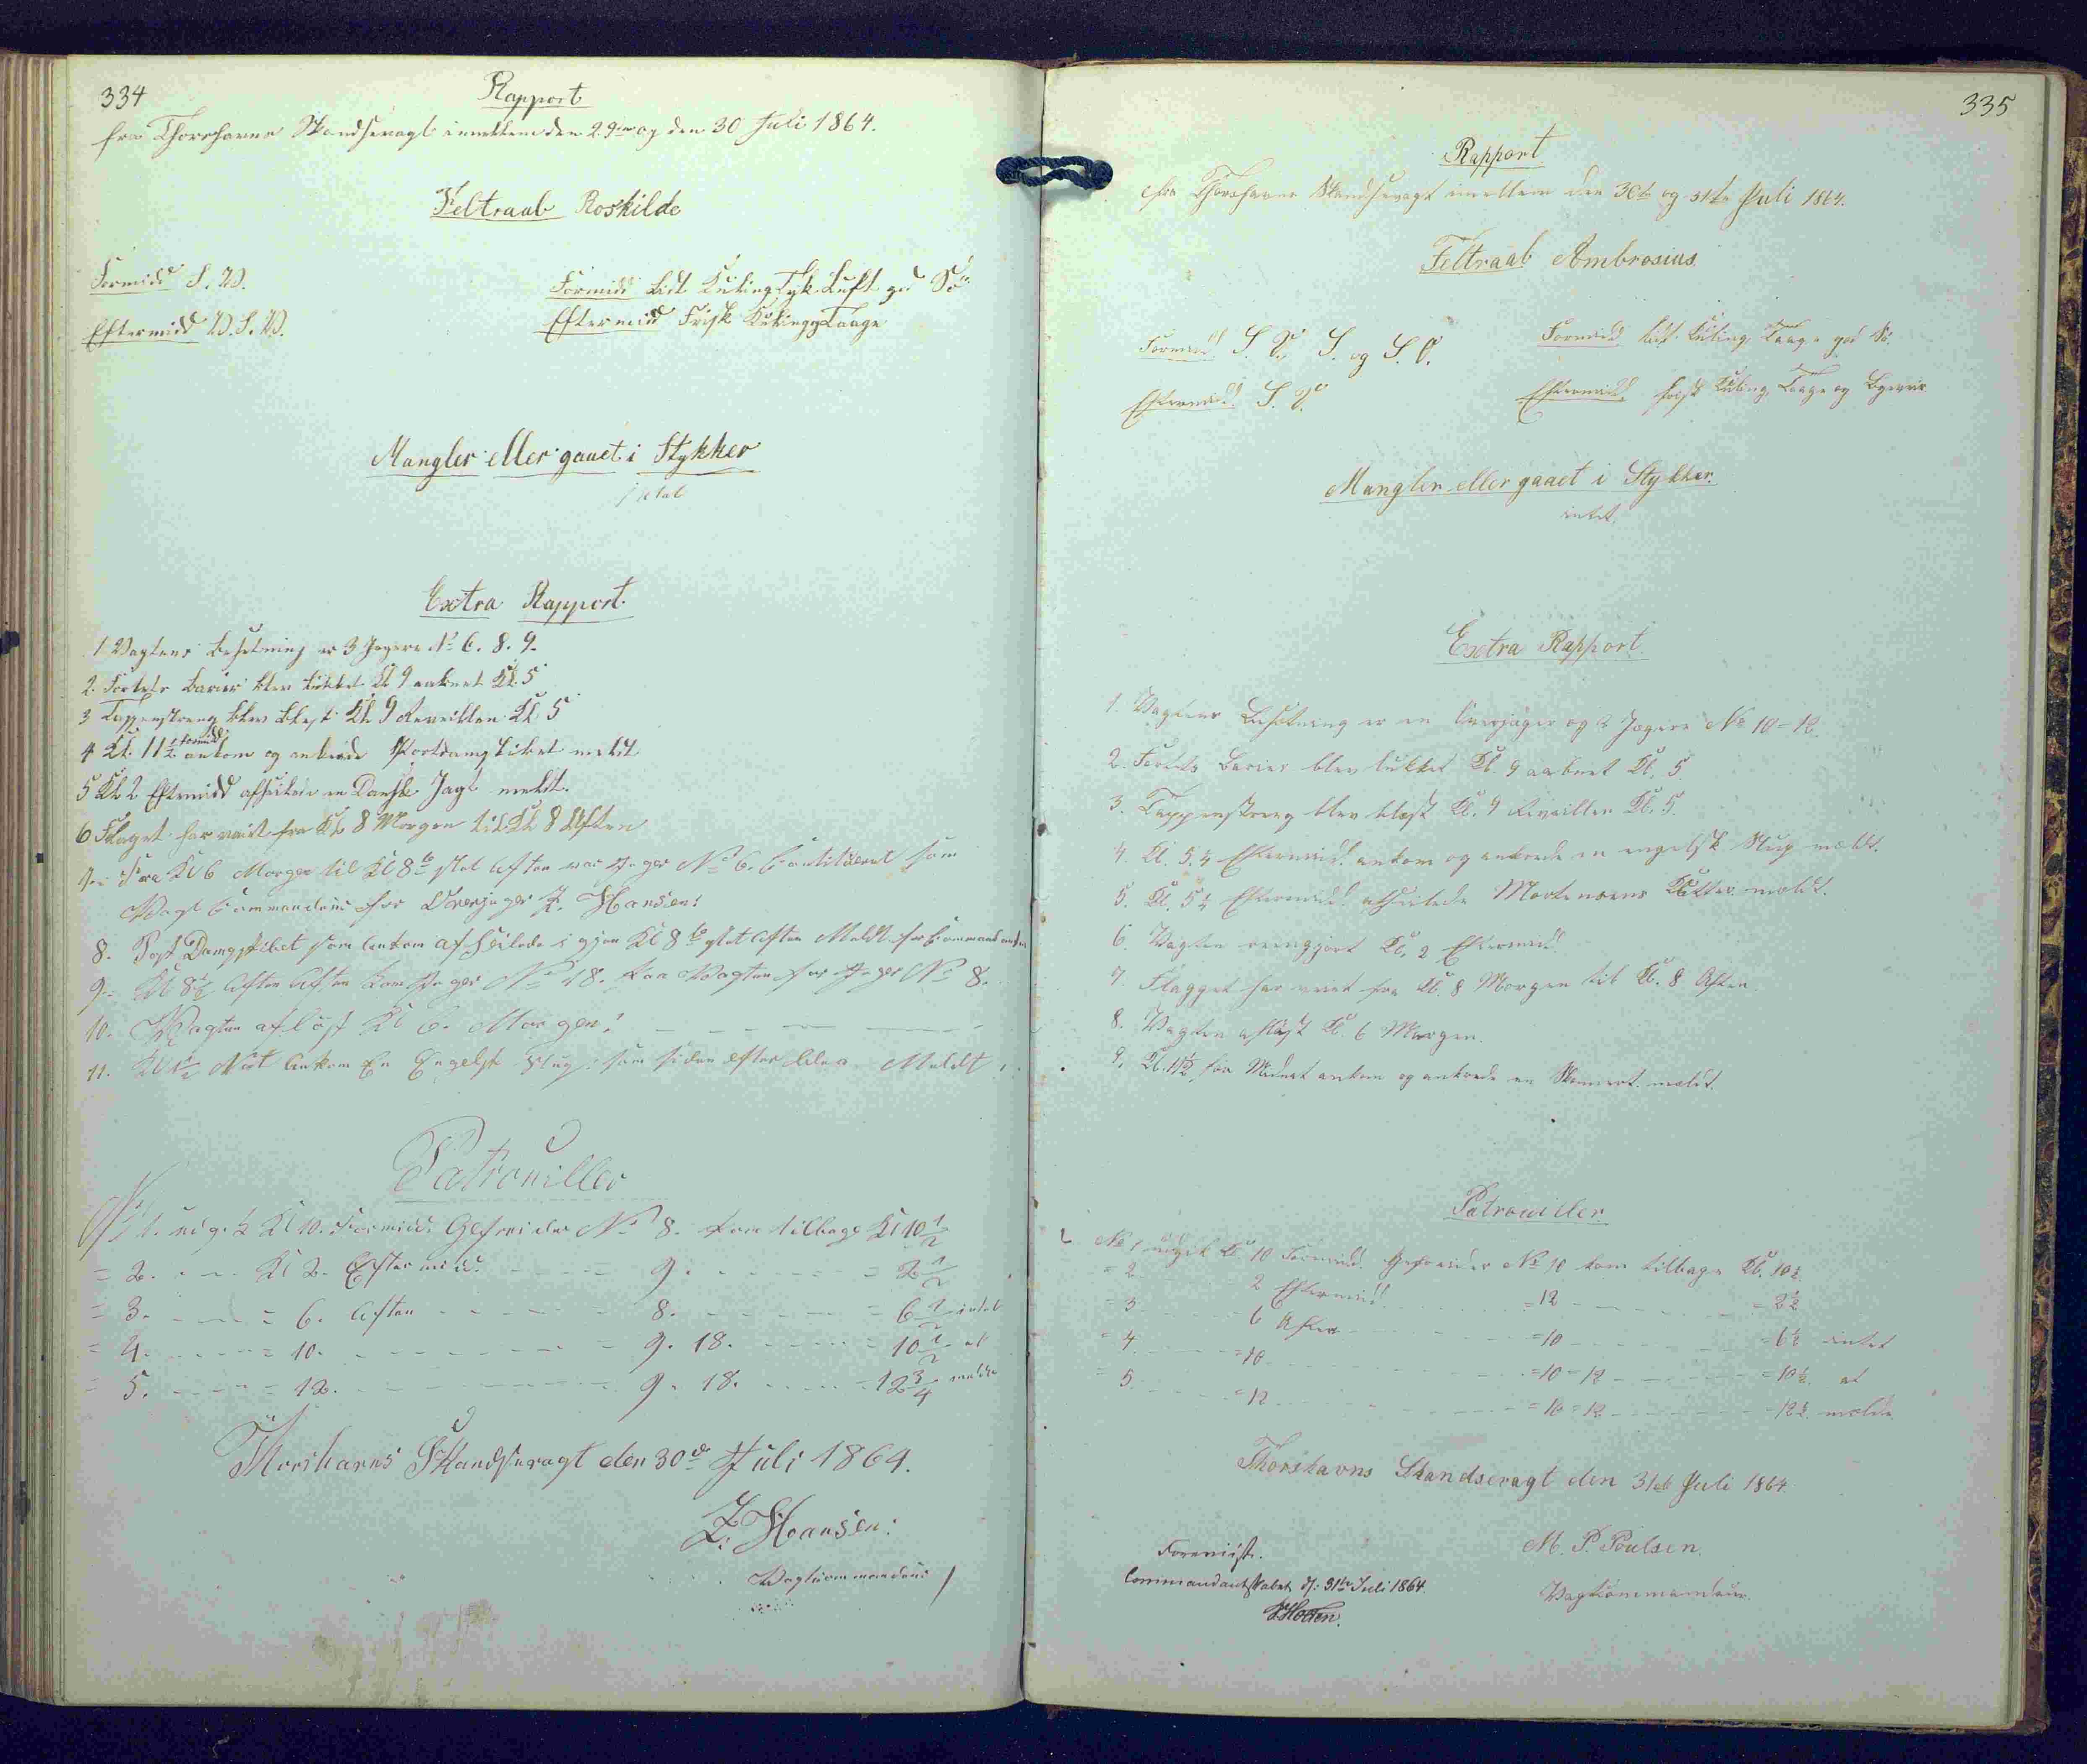 334
Rapport
fra Thorshavns Skandsevagt imellem den 29de og den 30 Juli 1864.
Feltraab Roskilde
Formidd S. V.
Formidd Lidt Kuling Tyk Luft gd Sö
Eftermidd V. S. V.
Eftermidd Frisk Kuling Taage
Mangler eller gaaet i Stykker
Intet
Extra Rapport
1. Vagtens Besetning er 3 Jægere No 6. 8. 9.
2. Fortets Barier blev lukket Kl 9 aabnet Kl. 5
3 Tappenstreng blev blæst Kl 9 Reveillen Kl 5
4 Kl. 11½ Formidd ankom og ankrede Postdampskibet meldt
5 Kl 2 Eftermidd afseilede en Dansk Jagt meldt.
6 Flaget har vaiet fra Kl 8 Morgen til Kl 8 Aften
7. Fra Kl 6 Morgen til Kl 8 slet Aften var Jæger No 6. Constitueret som
Vagt Commandeur for Overjæger Z. Hansen:
8. Post Dampskibet som ankom afseilede igjen Kl 8 slet Aften Meldt for Commandanten
9. Kl 8½ Aften kom Jæger No 18. paa Vagten for Jæger No 8.
10. Vagten aflöst Kl 6. Morgen:
11. Kl Nat Ankom En Engelsk Slup: som siden efter Meldt
Patrouiller
No 1. udgik Kl 10. Formidd. Gefreider No 8. kom tilbage Kl 10½
= 2. Kl 2. Eftermidd. 9. = 2½
= 3. = 6. Aften 8. = 6½ intet
= 4. = 10. 9. 18. 10½ at
= 5. = 12. 9. 18. = 12¾ melde
Thorshavns Skandsevagt den 30de Juli 1864.
Z. Hansen:
Vagtcommandeur
335
Rapport
fra Thorshavns Skandsevagt imellem den 30te og 31te Juli 1864.
Feltraab Ambrosius
Formidd. S. V. S. og S. O.
Formidd. lidt Kuling, Taage gd Sö.
Eftermidd. S. V.
Eftermidd. frisk Kuling, Taage og Bygveir
Mangler eller gaaet i Stykker.
intet.
Extra Rapport
1. Vagtens Besetning er en Overjæger og 2 Jægere No 10 = 12.
2. Fortets Barier blev lukket Kl. 9 aabnet Kl. 5.
3. Tappenstreng blev blæst Kl. 9 Reveillen Kl. 5.
4. Kl. 3¼ Eftermidd. ankom og ankrede en engelsk Slup meldt.
5. Kl. 5¼ Eftermidd. afseilede Mortensens Kutter meldt.
6. Vagten reengjort Kl. 2 Eftermidd.
7. Flagget har vaiet fra Kl. 8 Morgen til Kl. 8 Aften.
8. Vagten aflöst Kl. 6 Morgen.
9. Kl. 11½ för Midnat ankom og ankrede en Skonnert. meldt.
Patrouiller
No 1 udgik Kl 10 Formidd. Gefreider No 10 kom tilbage Kl. 10½.
= 2 2 Eftermidd. = 12 = 2½
= 3 6 Aften = 10 = 6½ intet
= 4 = 10 = 10 = 12 = 10½. at
= 5. = 12 = 10 = 12 = 12½. melde
Thorshavns Skandsevagt den 31te Juli 1864.
M. P. Poulsen.
Vagtkommandeur.
Foreviist.
Commandantskabet d: 31te Juli 1864.